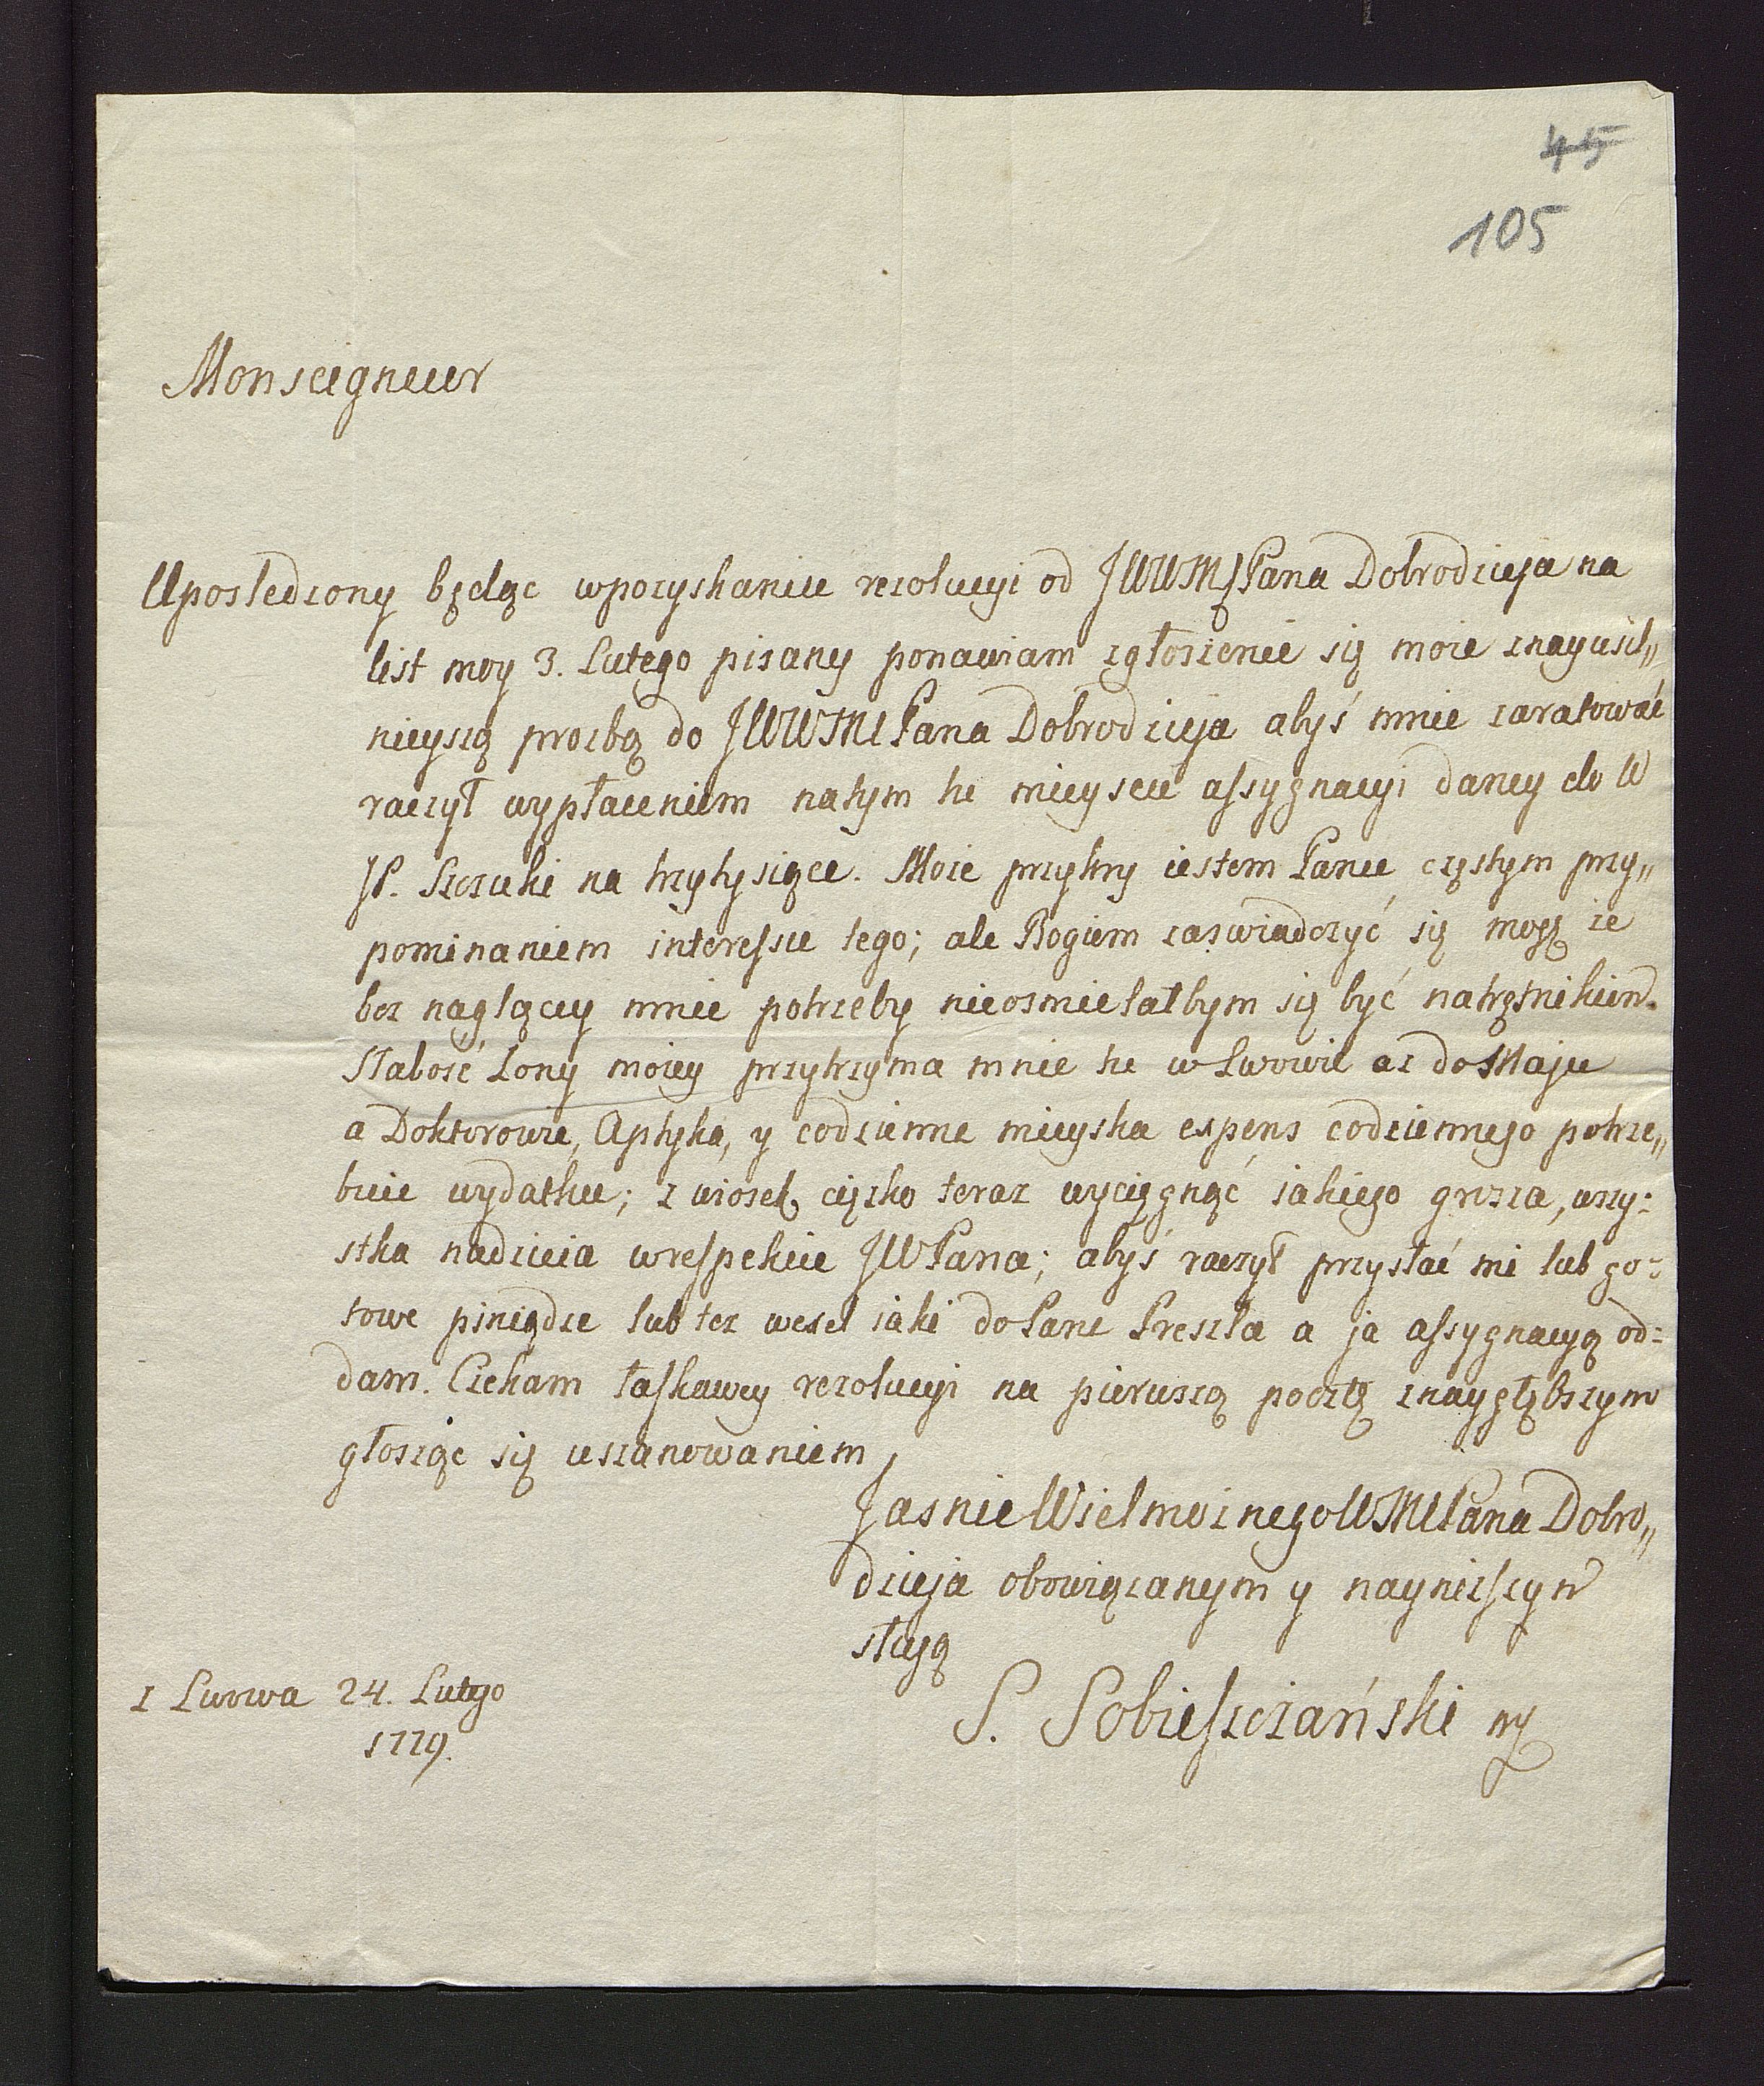 45
105
Monseigneur
Uposledzony będąc wpozyskaniu rezolucyi od JWWMPana Dobrodzieja na
list moy 3. Lutego pisany ponawiam zgłoszenie się moie znayusil„
nieyszą prozbą do JWWMPana Dobrodzieja abyś mnie zaratować
raczył wypłaceniem natym tu mieyscu assygnacyi daney do W
JP. Szczuki na trzytysiące. Może przykry iestem Panu częstym przy„
pominaniem interessu tego; ale Bogiem zaswiadczyć się mogę że
bez naglącey mnie potrzeby nieosmielałbym się być natrętnikiem.
Słabość Zony moiey przytrzyma mnie tu w Lwowie az do Maju
a Doktorowie, Aptyka, y codzienne mieyska expens codziennego potrze„
buie wydatku; z wiosek cięzko teraz wyciągnąć iakiego grosza, wszy:
stka nadzieia wrespekcie JWPana; abyś raczył przysłać mi lub go:
towe piniądze lub tez wexel iaki do Pana Preszla a ja assygnacyą od:
dam. Czekam łaskawey rezolucyi na pierwszą pocztę znaygłębszym
głosząc się uszanowaniem
Jasnie Wielmoznego WMPana Dobro„
dzieja obowiązanym y nayniższym
sługą
S. Sobieszczański mp
z Lwowa 24. Lutego
1779.